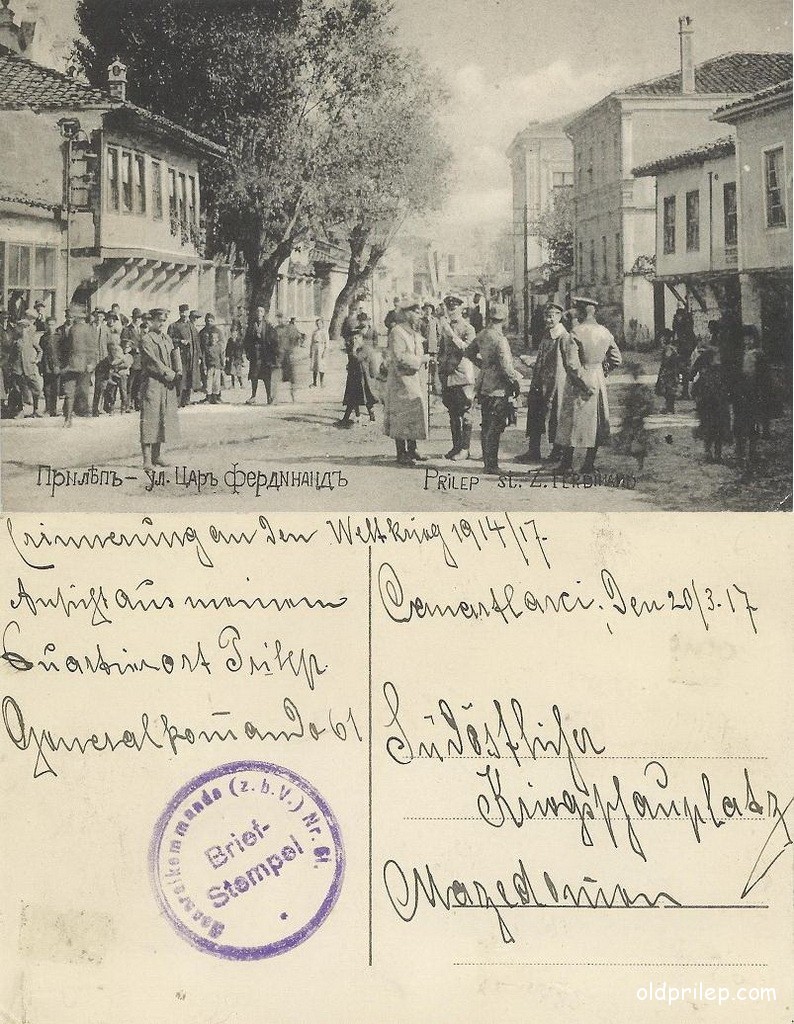 Прилѣпъ – ул. Царъ Фердинандъ
PRILEP st. Z. FERDINAND
Erinnerung an den Weltkrieg 1914/17.
Ansicht aus meinem
Quartierort Prilep.
Generalkomando 61
den 20/3.17
Südöstlicher
Kriegsschauplatz
Mazedonien
Generalkommando (z.b.V.) Nr. 61.
Brief-
Stempel
oldprilep.com